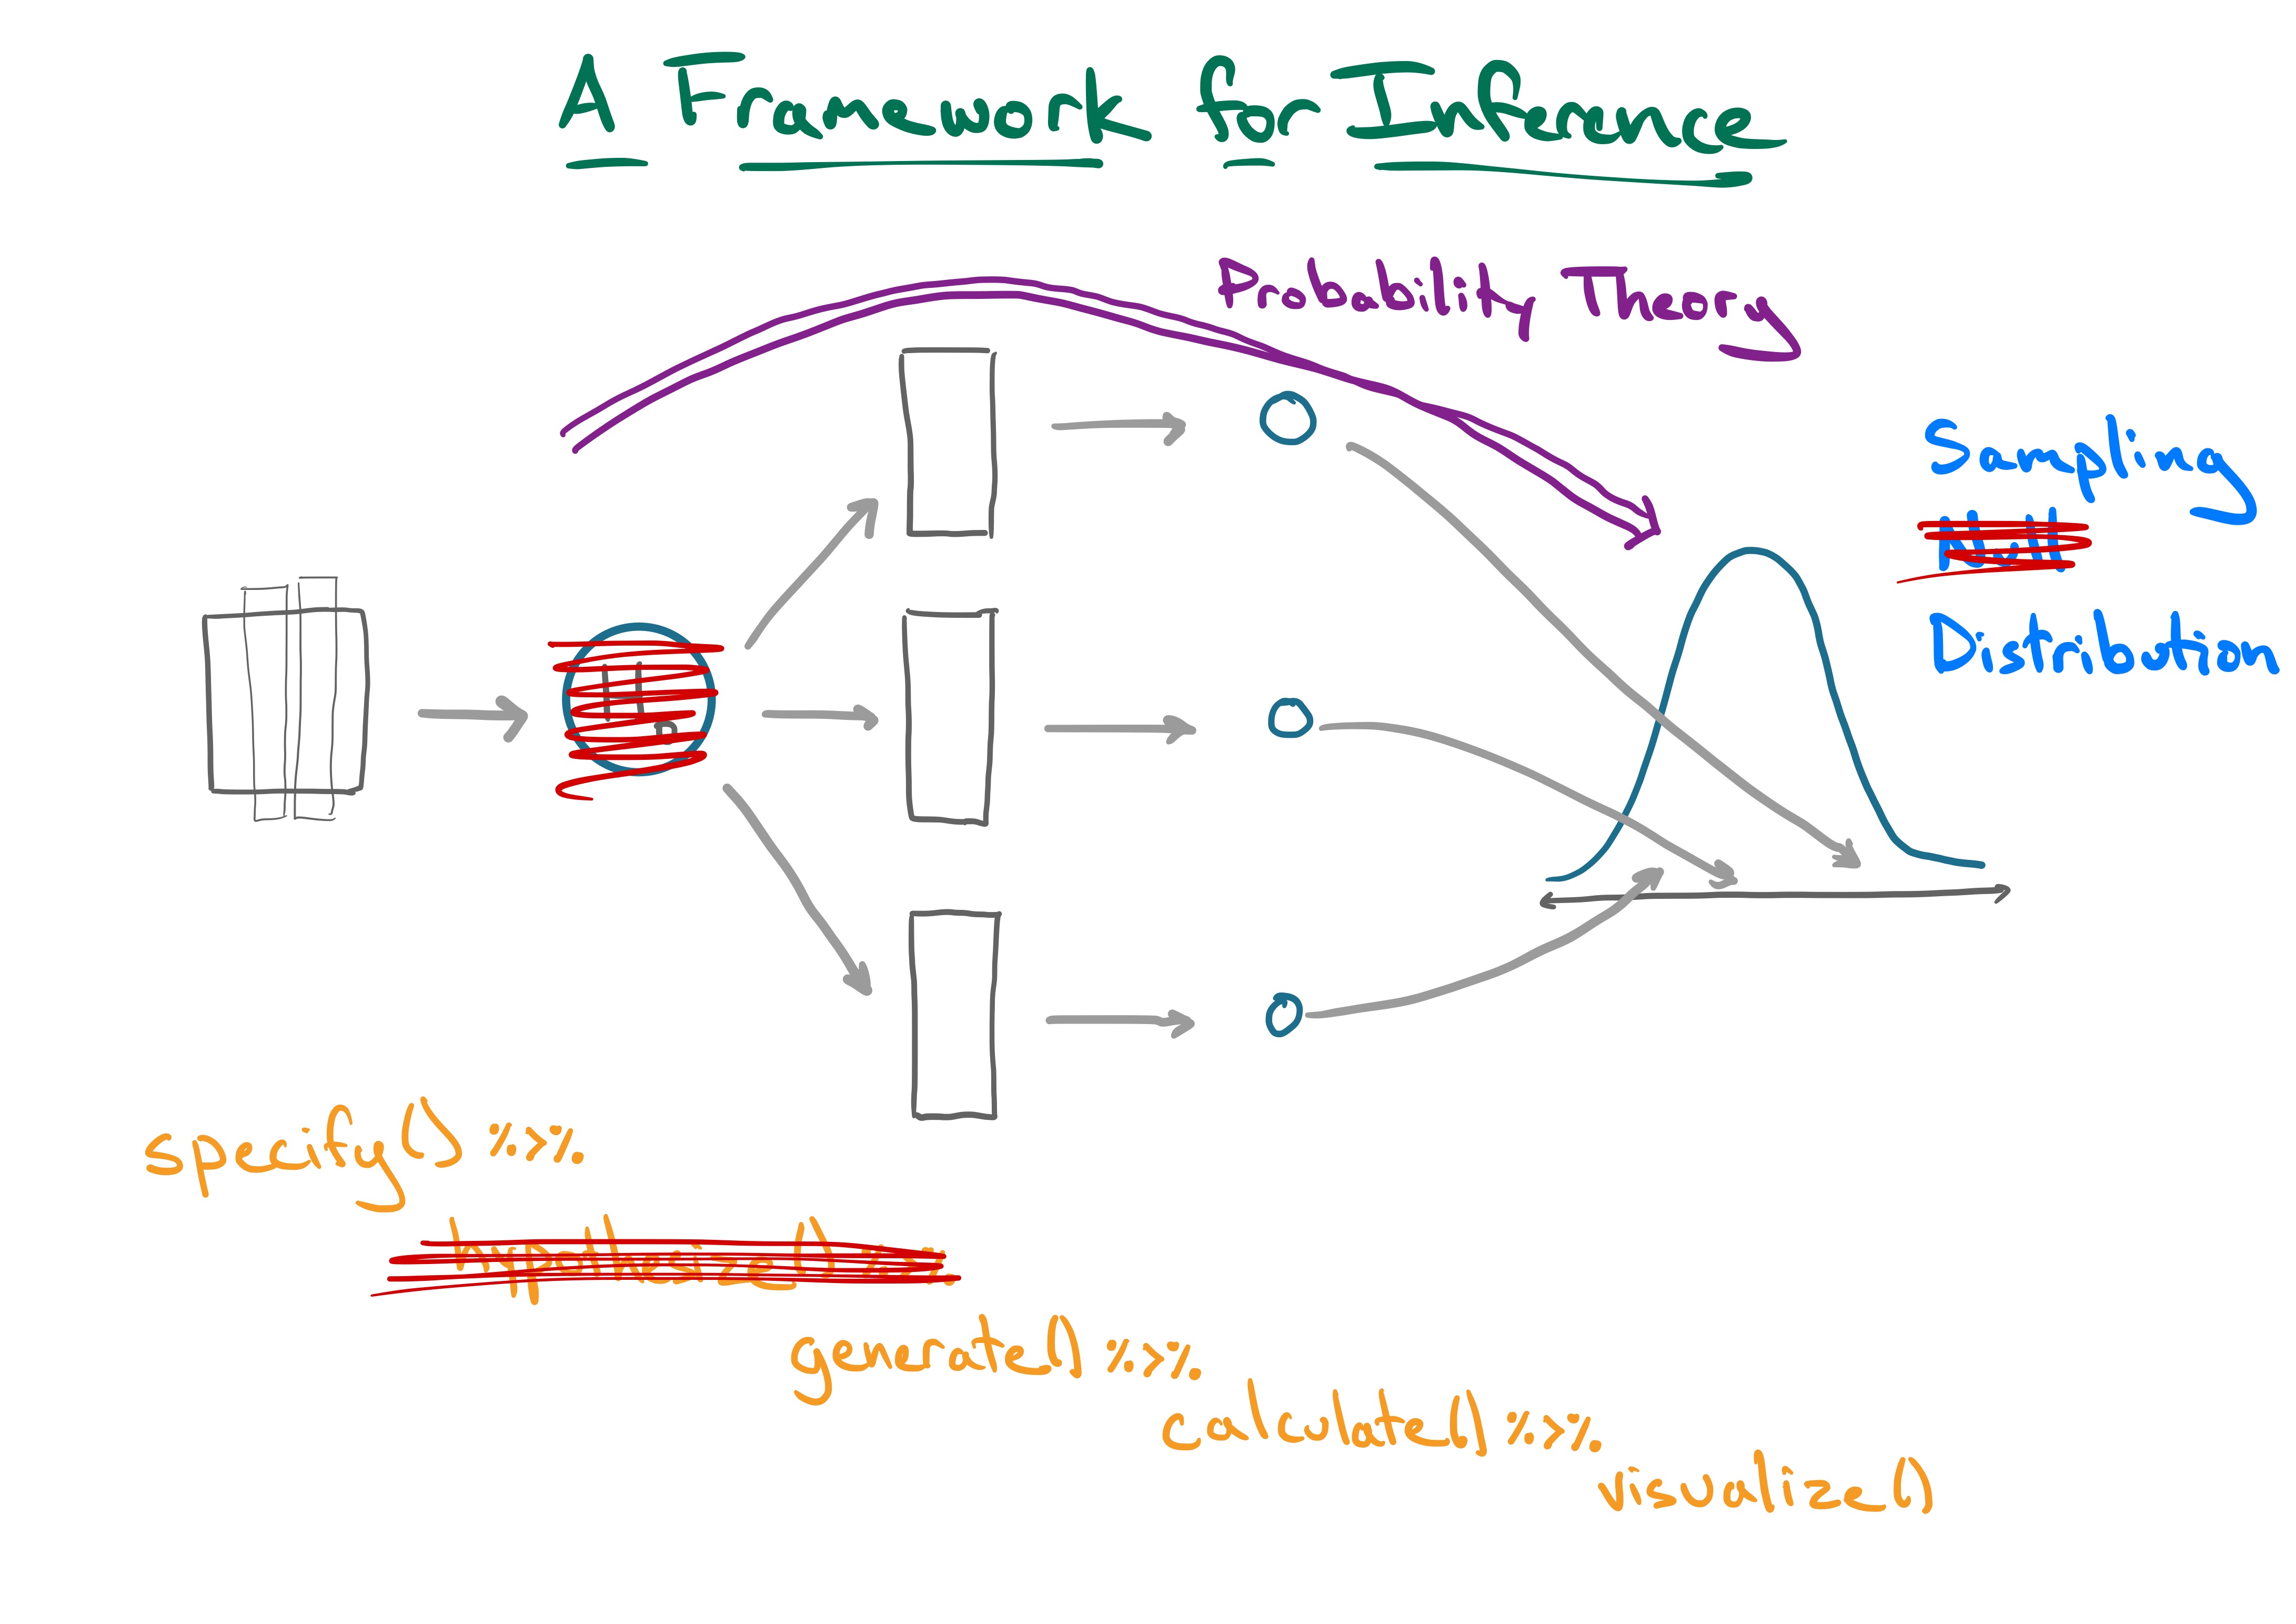 A Framework for Inference
Probability Theory
Sampling
Null
Distribution
H0
specify() %>%
hypothesize() %>%
generate() %>%
calculate() %>%
visualize()